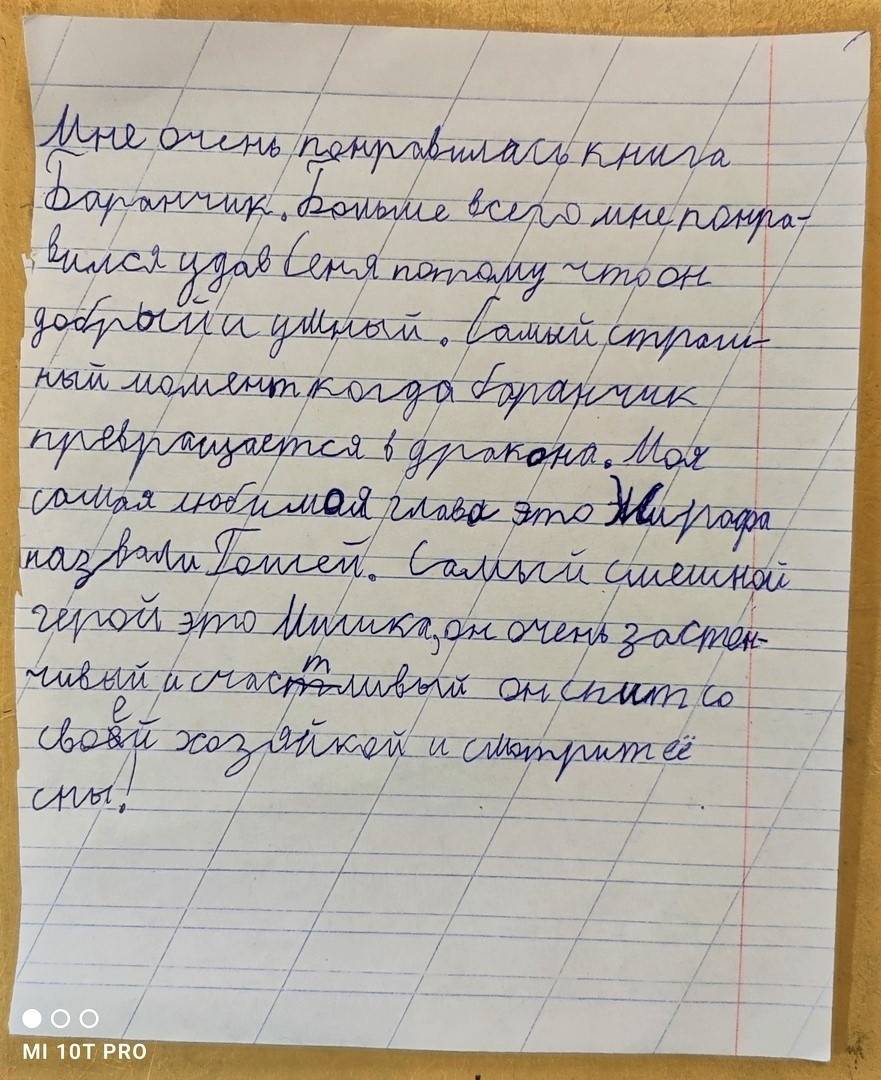 Мне очень понравилась книга
Баранчик. Больше всего мне понра-
вился удав Сеня потому что он
добрый и умный. Самый страш-
ный момент когда баранчик
превращается в дракона. Моя
самая любимая глава это Жирафа
назвали Гошей. Самый смешной
герой это Мишка, он очень застен-
чивый и счастливый он спит со
своей хозяйкой и смотрит её
сны!
MI 10T PRO